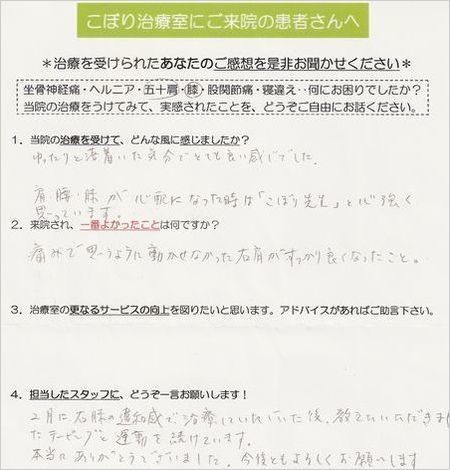 こぼり治療室にご来院の患者さんへ
＊治療を受けられたあなたのご感想を是非お聞かせください＊
坐骨神経痛・ヘルニア・五十肩・膝・股関節痛・寝違え‥何にお困りでしたか？
当院の治療をうけてみて、実感されたことを、どうぞご自由にお話ください。
1．当院の治療を受けて、どんな風に感じましたか？
ゆったりと落着いた気分でとても良い感じでした。
肩・腰・膝が心配になった時は「こぼり先生」と心強く
思っています。
2．来院され、一番よかったことは何ですか？
痛みで思うように動かせなかった右肩がすっかり良くなったこと。
3．治療室の更なるサービスの向上を図りたいと思います。アドバイスがあればご助言下さい。
4．担当したスタッフに、どうぞ一言お願いします！
2月に右膝の違和感で治療していただいた後、教えていただきまし
たテーピングと運動を続けています。
本当にありがとうございました。今後ともよろしくお願いします